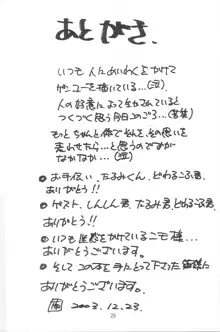 あとがき。
いつも人にめいわくをかけて
ゲンコーを描いている…(泣)
人の好意によって生かされていると
つくづく思う今日このごろ…(苦笑)
もっとちゃんと体でそれ、その思いを
表わせたら…と思うのですが
なかなか…(泣)
●お手伝い、たるみくん、どわるこふ君、
ありがとう!!
●ゲスト、しんしん君、たるみ君、どわるこふ君、
ありがとう!!
●いつも迷惑をかけているニモ様…
ありがとうございます。
●そしてこの本を手にとって下さった皆様に
ありがとうございます。
2003.12.23.
25